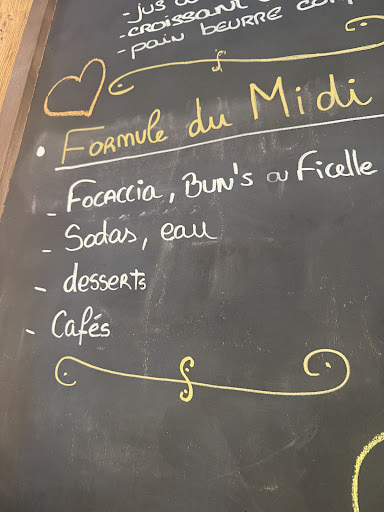 - jus
- croissant
- pain beurre
• Formule du Midi
- Focaccia, Bun's ou Ficelle
- Sodas, eau
- desserts
- Cafés